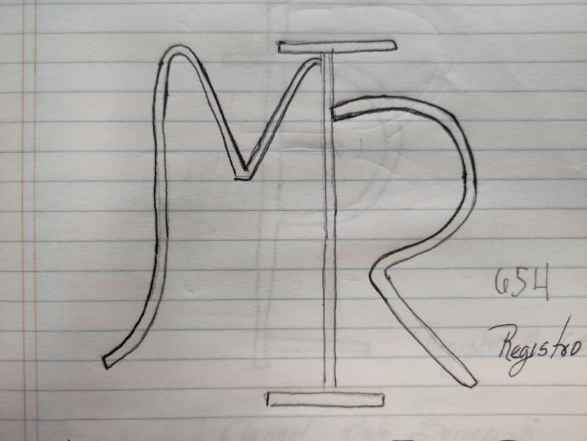 MIR
654
Registro